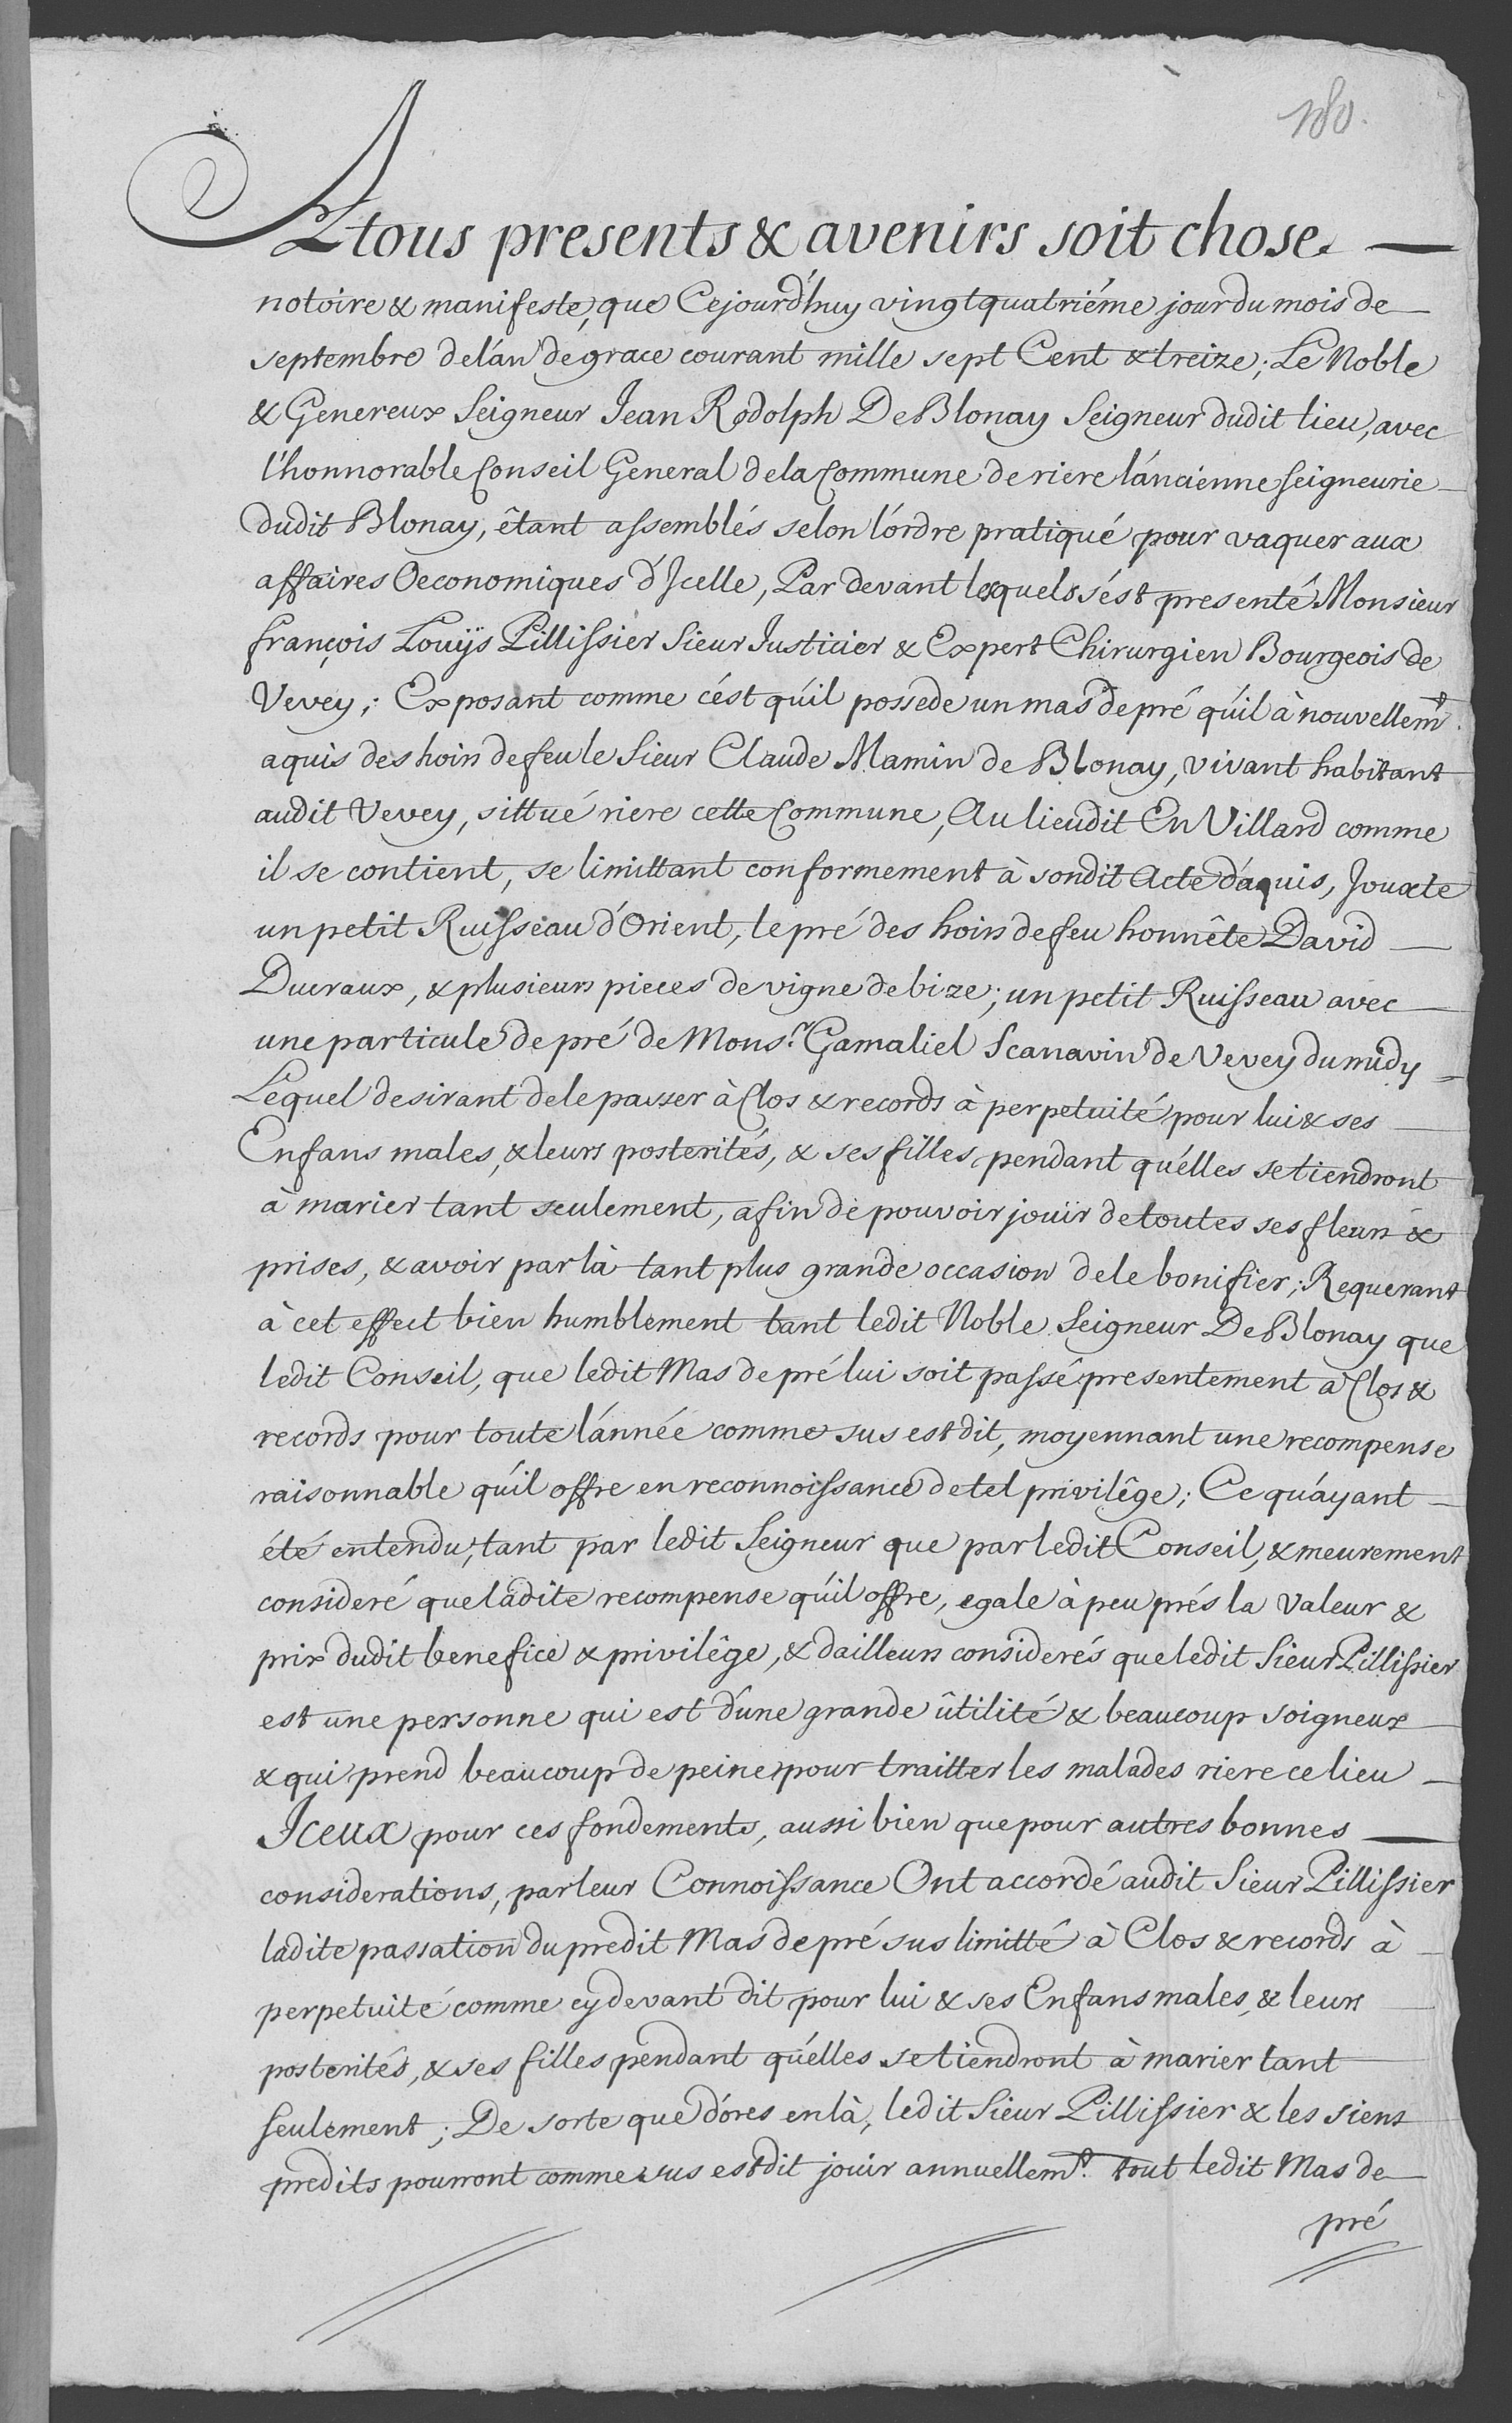 180.
A tous presents & avenirs soit chose
notoire & manifeste, que Cejourd'huy vingtquatriéme jour du mois de
septembre de l'an de grace courant mille sept Cent & treize; Le Noble
& Genereux Seigneur Jean Rodolph De Blonay Seigneur dudit lieu, avec
l'honnorable Conseil General de la Commune de riere l'ancienne seigneurie
dudit Blonay, êtant assemblés selon l'ordre pratiqué pour vaquer aux
affaires Oeconomiques d'Icelle, Par devant lesquels s'ést presenté Monsieur
françois Louÿs Pillissier Sieur Justicier & Expert Chirurgien Bourgeois de
Vevey; Exposant comme c'ést qu'il possede un mas de pré qu'il à nouvellemt.
aquis des hoirs de feu le Sieur Claude Mamin de Blonay, vivant habitant
audit Vevey, sittué riere cette Commune, Au lieudit En Villard comme
il se contient, se limittant conformement à sondit Acte d'aquis, Jouxte
un petit Ruisseau d'Orient, le pré des hoirs de feu honnête David
Ducraux, & plusieurs pieces de vigne de bize; un petit Ruisseau avec
une particule de pré de Monsr. Gamaliel Scanavin de Vevey du midy
Lequel desirant de le passer à Clos & records à perpetuité pour lui & ses
Enfans males, & leurs posterités, & ses filles pendant qu'élles se tiendront
à marier tant seulement, afin de pouvoir jouïr de toutes ses fleurs &
prises, & avoir par là tant plus grande occasion de le bonifier; Requerant
à cet effect bien humblement tant ledit Noble Seigneur De Blonay que
ledit Conseil, que ledit Mas de pré lui soit passé presentement à Clos &
records pour toute l'année comme sus est dit, moyennant une recompense
raisonnable qu'il offre en reconnoissance de tel privilêge; Ce qu'ayant
été entendu, tant par ledit Seigneur que par ledit Conseil, & meurement
consideré que ladite recompense qu'il offre, egale à peu prés la valeur &
prix dudit benefice & privilêge, & dailleurs considerés que ledit Sieur Pillissier
est une personne qui est d'une grande ûtilité & beaucoup soigneux
& qui prend beaucoup de peine pour traitter les malades riere ce lieu
Iceux pour ces fondements, aussi bien que pour autres bonnes
considerations, par leur Connoissance Ont accordé audit Sieur Pillissier
ladite passation du predit Mas de pré sus limitté à Clos & records à
perpetuité comme cy devant dit pour lui & ses Enfans males, & leurs
posterités, & ses filles pendant qu'élles se tiendront à marier tant
seulement; De sorte que d'ores en là, ledit Sieur Pillissier & les siens
predits pourront comme sus est dit jouir annuellemt. tout ledit Mas de
pré